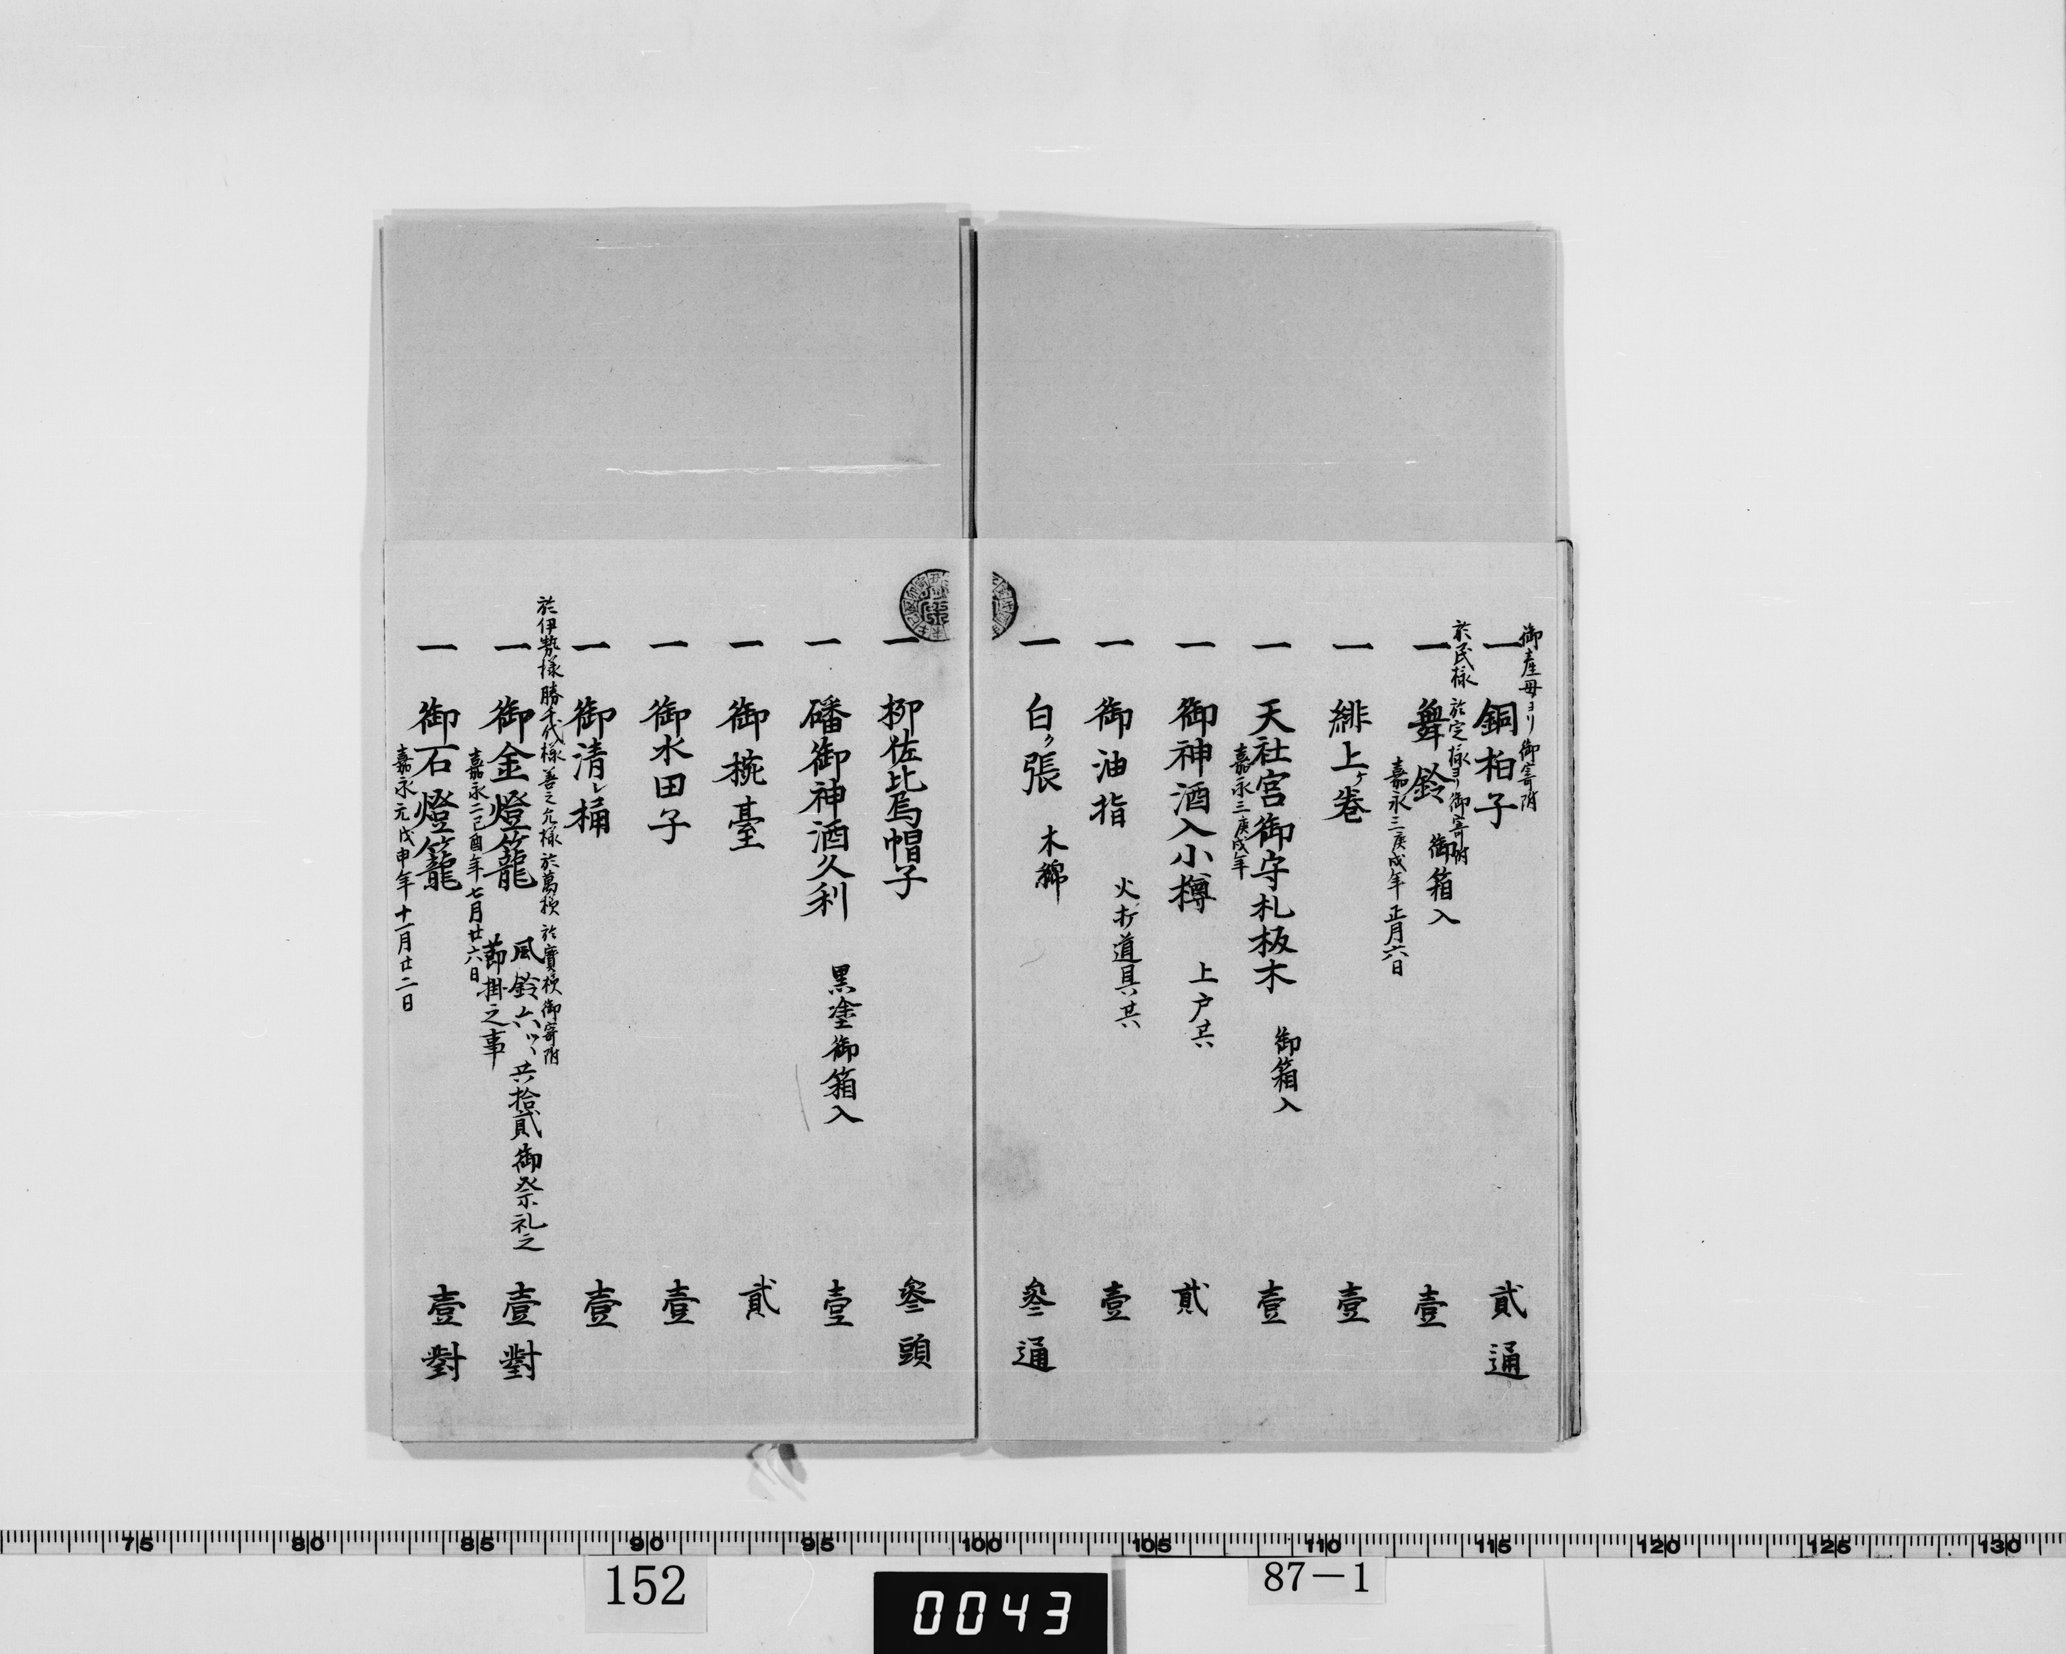 御産母ヨリ御寄附
一 銅柏子 貳通
於民様 於定様ヨリ御寄附
一 舞鈴 御箱入 壹
嘉永三庚戌年正月六日
一 緋上ケ巻 壹
一 天社宮御守札板木 御箱入 壹
嘉永三庚戌年
一 御神酒入小樽 上戸共 貳
一 御油指 火打道具共 壹
一 白ク張 木綿 參通
一 柳佐比烏帽子 參頭
一 磻御神酒久利 黒塗御箱入 壹
一 御椀臺 貳
一 御水田子 壹
一 御清レ桶 壹
於伊勢様 勝千代様 善之允様 於萬様 於寶様 御寄附
一 御金燈籠 風鈴六ツヽ共拾貳御祭礼之 壹對
節掛之事
嘉永二己酉年七月廿六日
一 御石燈籠 壹對
嘉永元戊申年十一月廿二日
75 80 85 90 95 100 105 110 115 120 125 130
152
0043
87-1